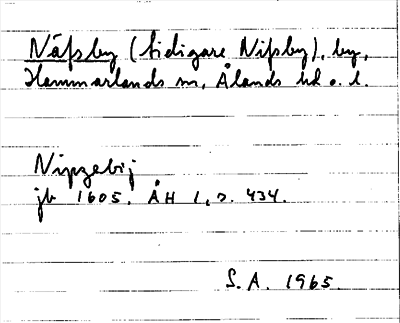 Näfsby (tidigare Nifsby), by,
Hammarlands sn, Ålands hd o. l.
Nipzebij
jb 1605. ÅH 1, s. 434.
S.A. 1965.